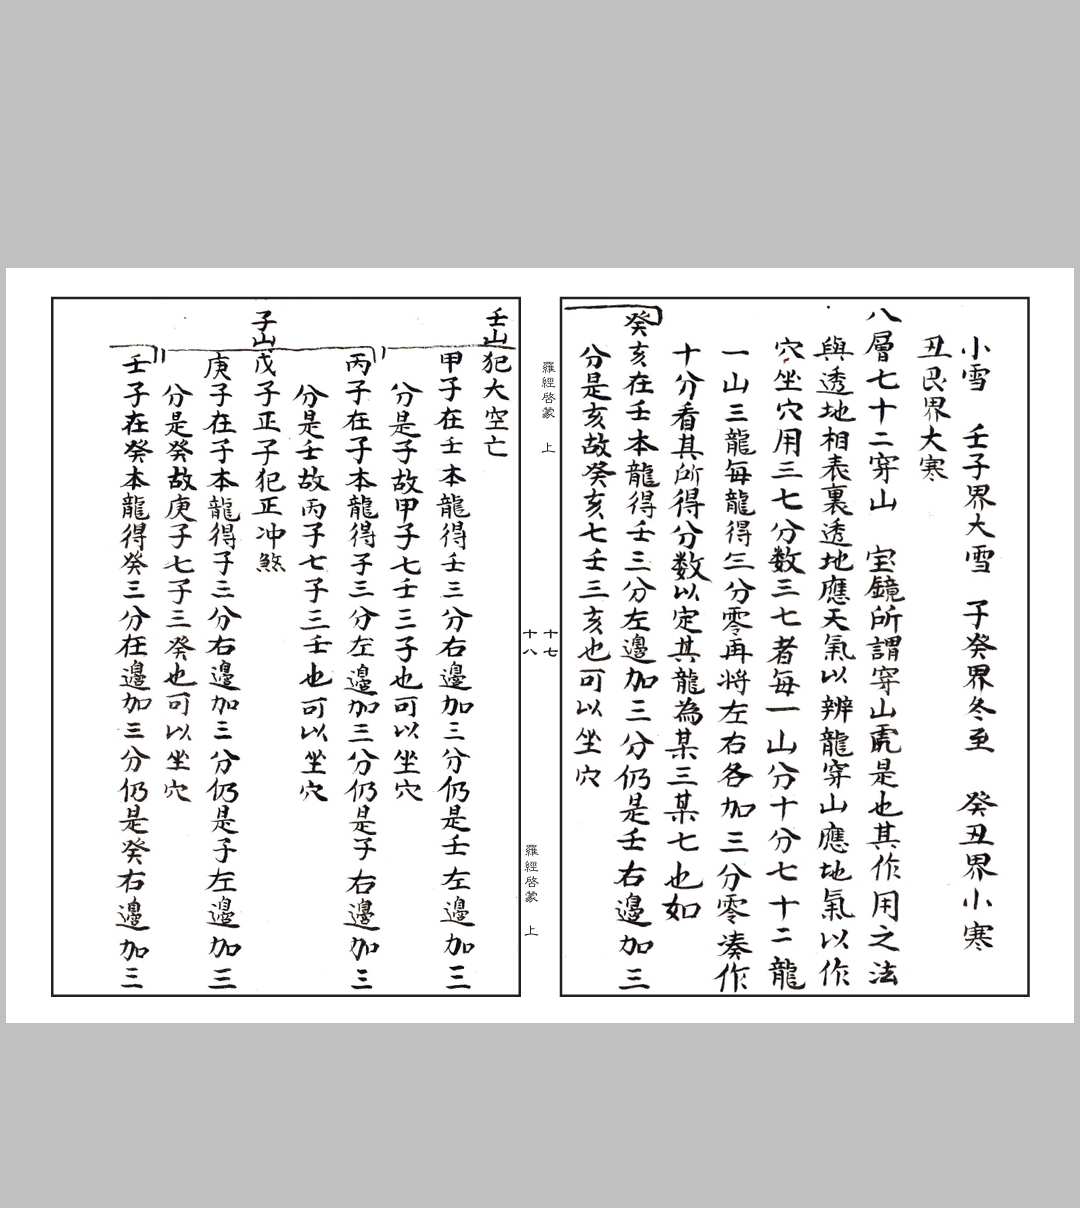 小雪　壬子界大雪　子癸界冬至　癸丑界小寒
丑艮界大寒
八層七十二穿山　宝鏡所謂穿山虎是也其作用之法
與透地相表裏透地應天氣以辨龍穿山應地氣以作
穴坐穴用三七分数三七者每一山分十分七十二龍
一山三龍每龍得三分零再将左右各加三分零凑作
十分看其所得分数以定其龍為某三某七也如
癸亥在壬本龍得壬三分左邊加三分仍是壬右邊加三
分是亥故癸亥七壬三亥也可以坐穴
羅經啓蒙　上
十七
十八
羅經啓蒙　上
壬山犯大空亡
甲子在壬本龍得壬三分右邊加三分仍是壬左邊加三
分是子故甲子七壬三子也可以坐穴
丙子在子本龍得子三分左邊加三分仍是子右邊加三
分是壬故丙子七子三壬也可以坐穴
子山戊子正子犯正冲煞
庚子在子本龍得子三分右邊加三分仍是子左邊加三
分是癸故庚子七子三癸也可以坐穴
壬子在癸本龍得癸三分在邊加三分仍是癸右邊加三